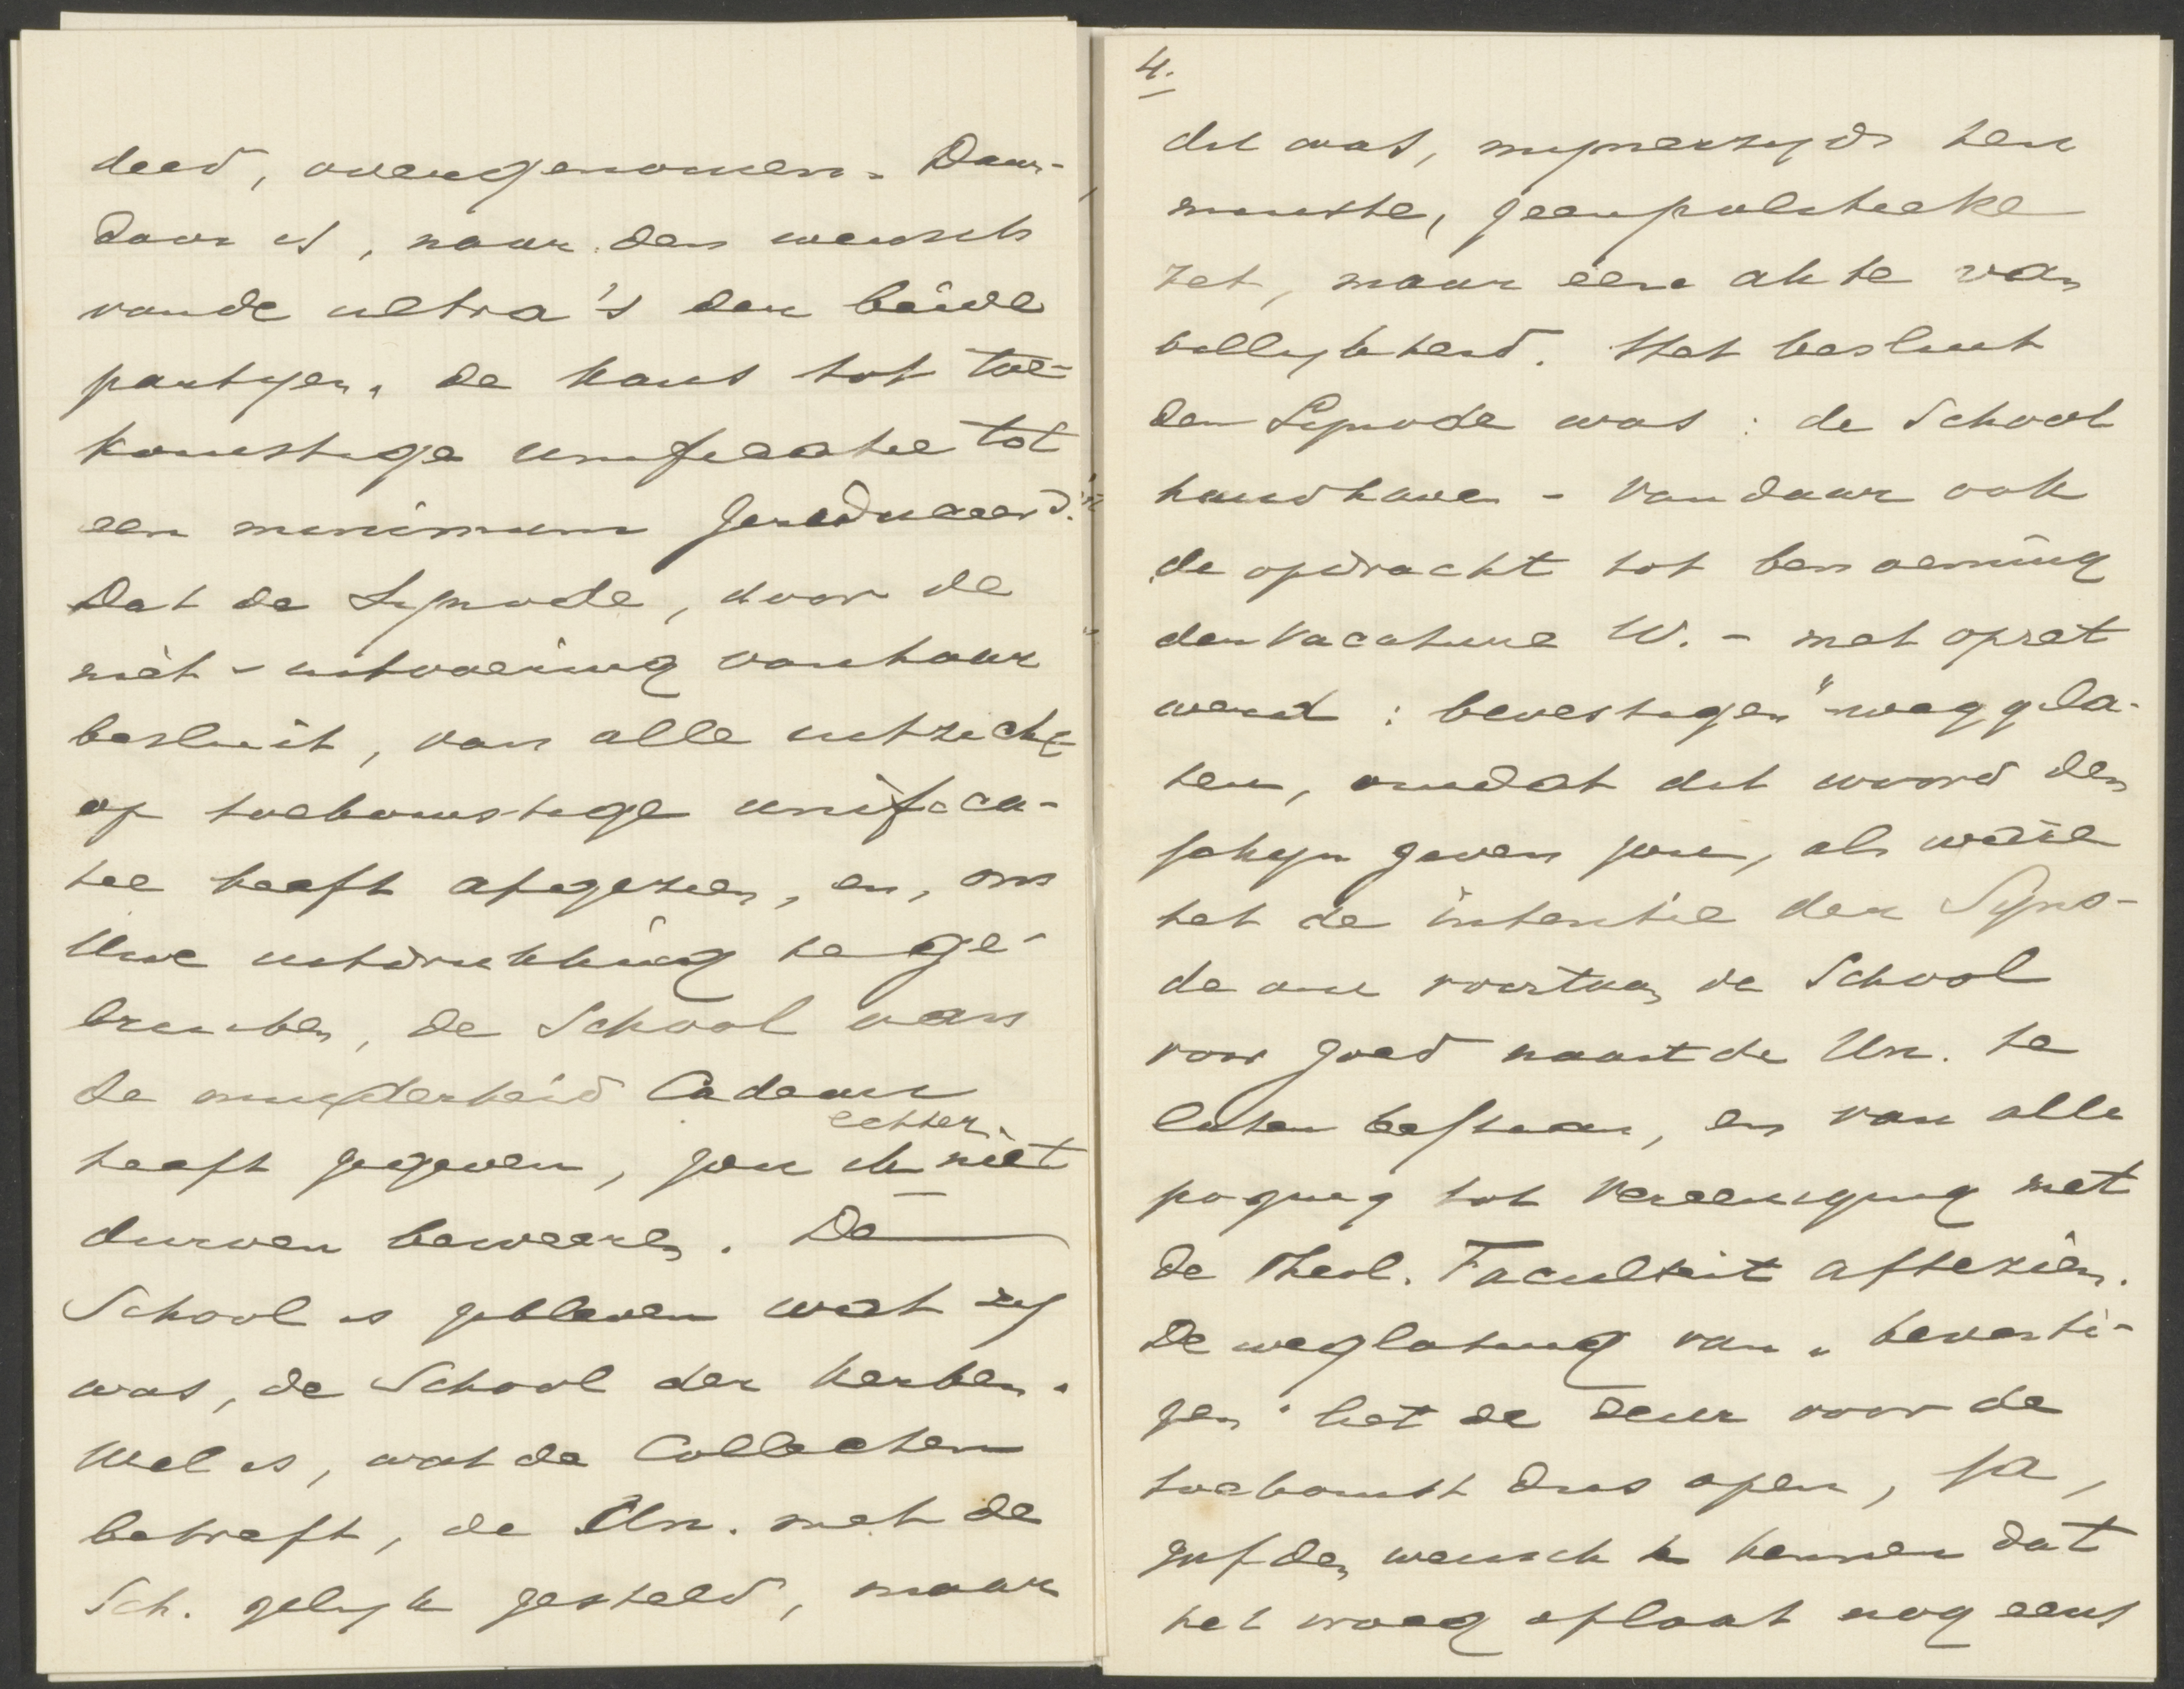 deed, overgenomen. Daar-
door is, naar den wensch
van de ultra's der beide
partijen, de kans tot toe-
komstige unificatie tot
een minimum gereduceerd.
Dat de Synode, door de
niet-uitvoering van haar
besluit, van alle uitzicht
op toekomstige unifica-
tie heeft afgezien, en, om
Uwe uitdrukking te ge-
bruiken, de School aan
de minderheid Cadeau
heeft gegeven, zou ik echter niet
durven beweren. De
School is gebleven wat zij
was, de School der kerken.
Wel is, wat de Collecten
betreft, de Un. met de
Sch. gelijk gesteld, maar
4.
dit was, mijnerzijds ten
minste, geen politieke
zet, maar eene akte van
billijkheid. Het besluit
der Synode was: de School
handhaven - van daar ook
de opdracht tot benoeming
der vacature W. - met opzet
werd: bevestigen" weggela-
ten, omdat dit woord den
schijn geven zou, als ware
het de intentie der Syno-
de om voortaan de School
voor goed naast de Un. te
laten bestaan, en van alle
poging tot vereeniging met
de Theol. Faculteit aftezien.
De weglating van "bevesti-
gen" liet de deur voor de
toekomst dus open, ja,
gaf den wensch te kennen dat
het vroeg of laat nog eens